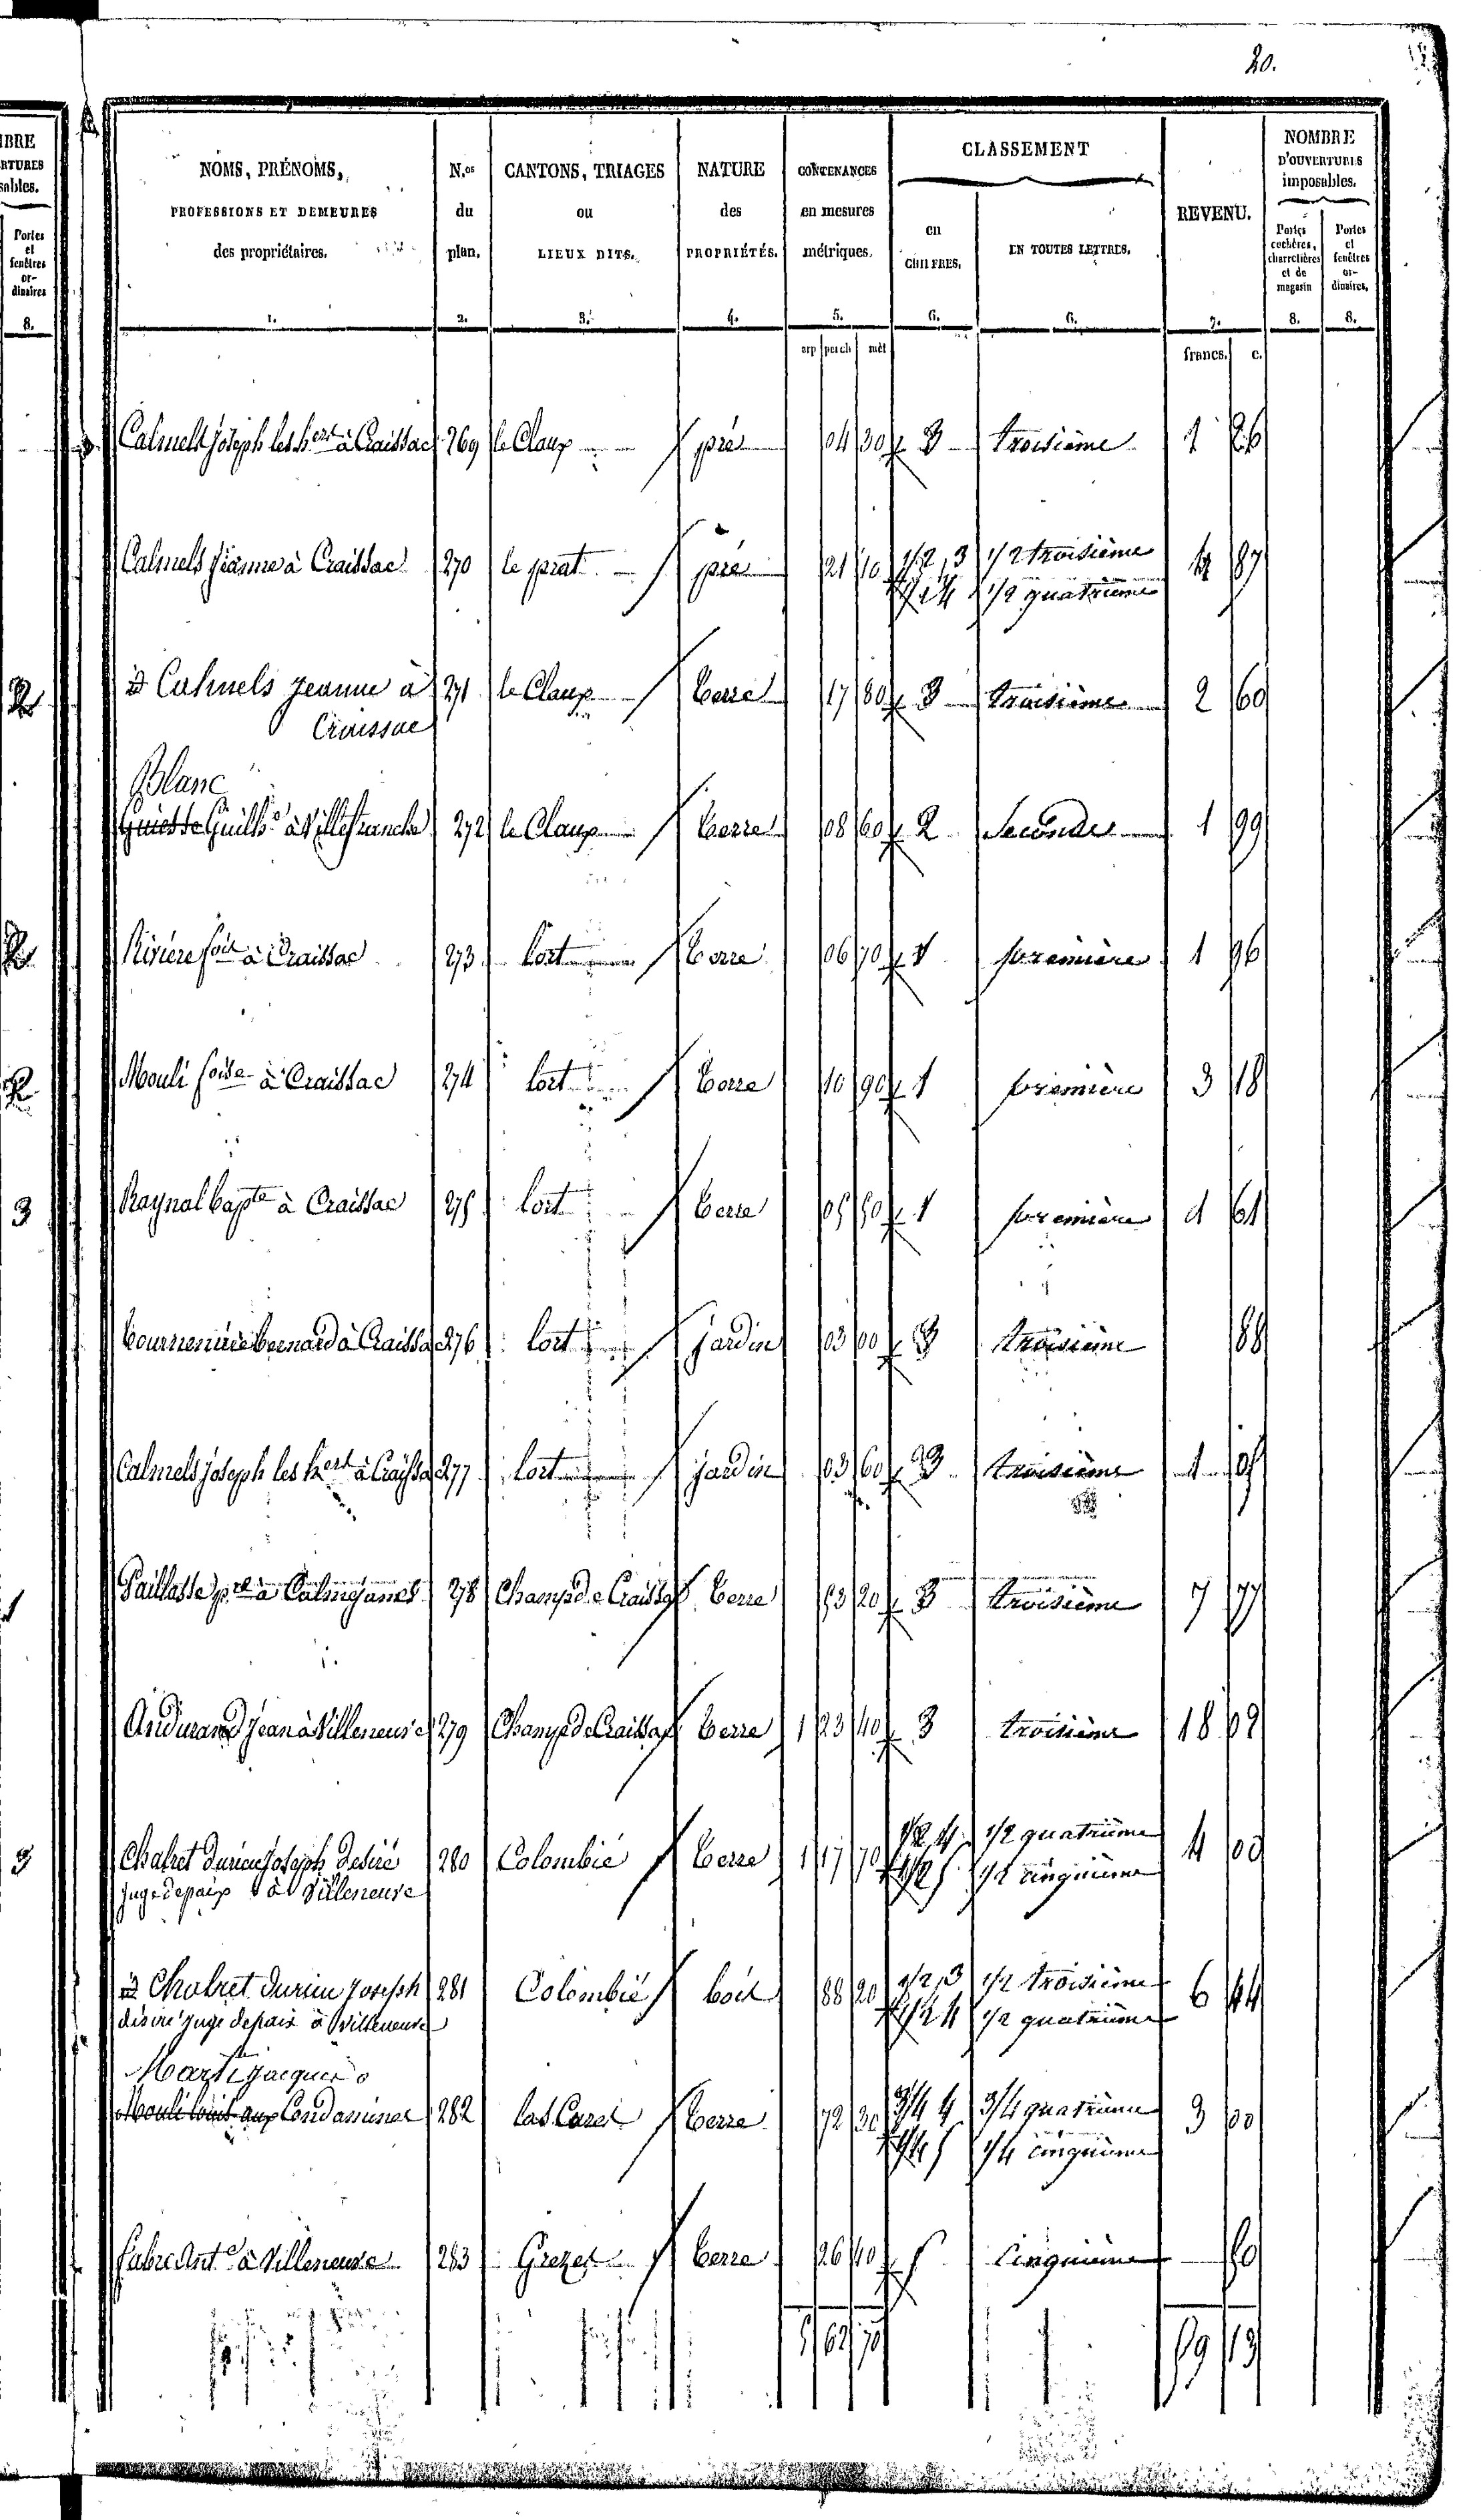 20.
BRE
RTURES
sables.
Portes
et
fenêtres
or-
dinaires
8.
NOMS, PRÉNOMS,
PROFESSIONS ET DEMEURES
des propriétaires.
1.
N.os
du
plan.
2.
CANTONS, TRIAGES
ou
LIEUX DITS.
3.
NATURE
des
PROPRIÉTÉS.
4.
CONTENANCES
en mesures
métriques.
5.
CLASSEMENT
en
CHIFFRES.
6.
EN TOUTES LETTRES.
6.
REVENU.
7.
NOMBRE
D'OUVERTURES
imposables.
Portes
cochères,
charretières
et de
magasin
8.
Portes
et
fenêtres
or-
dinaires.
8.
arp perch mèt francs. c.
Calmels joseph les hers à Craissac 269 le Claux pré 04 30 3 troisième 1 26
Calmels jeanne à Craissac 270 le prat pré 21 10 1/2 3 1/2 troisième 4 87
1/2 4 1/2 quatrième
id Calmels jeanne à 271 le Claux terre 17 80 3 troisième 2 60
Craissac
Blanc
Guille à Villefranche 272 le Claux terre 08 60 2 Seconde 1 99
Rivière fois à Craissac 273 lort terre 06 70 1 première 1 96
Mouli foise à Craissac 274 lort terre 10 90 1 première 3 18
Raynal bapte à Craissac 275 lort terre 05 50 1 première 1 61
bernard à Craissac 276 lort jardin 03 00 3 troisième 88
Calmels joseph les hers à Craissac 277 lort jardin 03 60 3 troisième 1 05
Paillasse pre à Calmejanes 278 Champ de Craissac terre 53 20 3 troisième 7 77
Andurand jean à Villeneuve 279 Champ de Craissac terre 1 23 40 3 troisième 18 02
Chalret durieu joseph desiré 280 Colombié terre 1 17 70 1/2 4 1/2 quatrième 4 00
juge de paix à Villeneuve 1/2 5 1/2 cinquième
id Chalret durieu joseph 281 Colombié bois 88 20 1/2 3 1/2 troisième 6 44
désiré juge de paix à Villeneuve 1/2 4 1/2 quatrième
Marti jacques
Mouli louis aux Condamines 282 las Cazes terre 72 30 3/4 4 3/4 quatrième 3 00
1/4 5 1/4 cinquième
fabre Ante à Villeneuve 283 Grezes terre 26 40 5 Cinquième 50
5 62 70 59 13